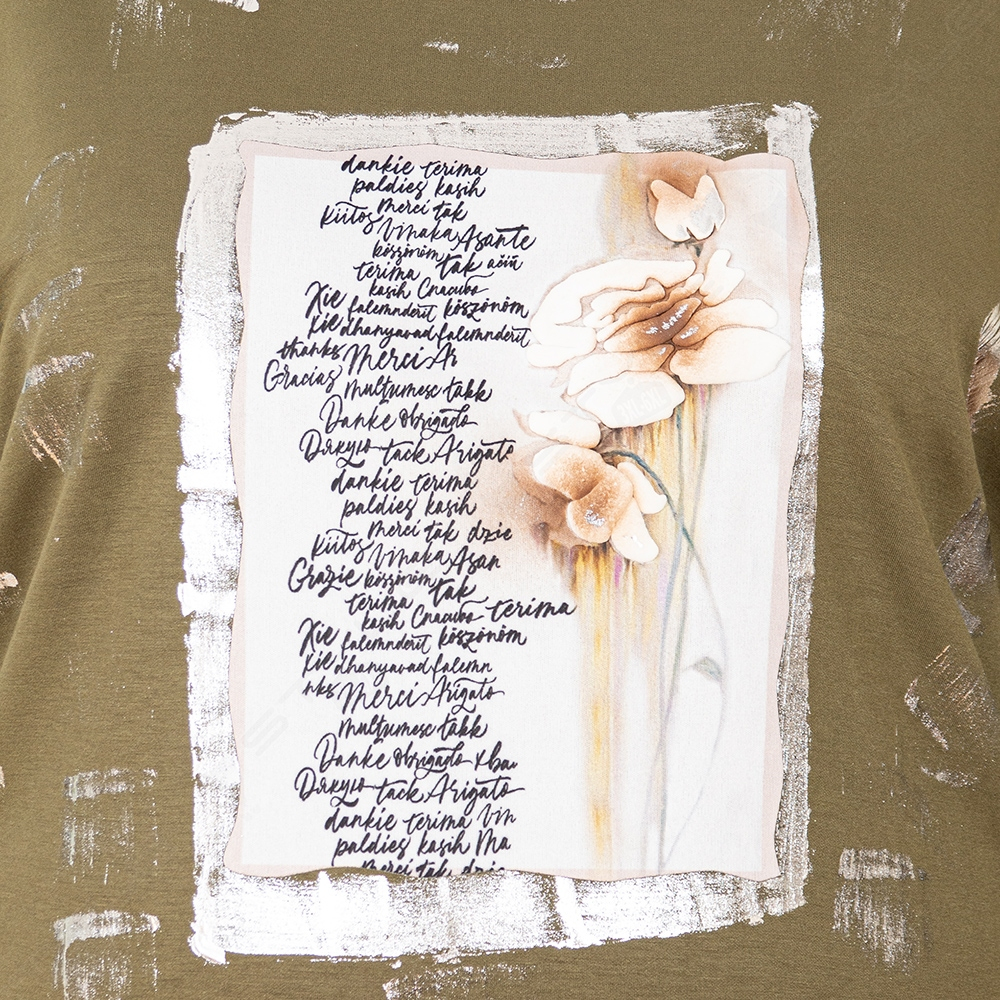 dankie terima
paldies kasih
merci tak
Kiitos
Vinaka Asante
köszönöm
terima tak ačiū
kasih Спасибо
Xie falemnderit köszönöm
Xie dhanyavad falemnderit
thanks Merci Ar
Gracias
multumesc takk
Danke obrigado
Дякую tack Arigato
dankie terima
paldies kasih
merci tak dzie
Kiitos
Vinaka Asan
Grazie köszönöm tak
terima
kasih Спасибо terima
Xie falemnderit köszönöm
Xie dhanyavad falemn
nks Merci Arigato
multumesc takk
Danke obrigado хва
Дякую tack Arigato
dankie terima Vin
paldies kasih Ma
merci tak dzie